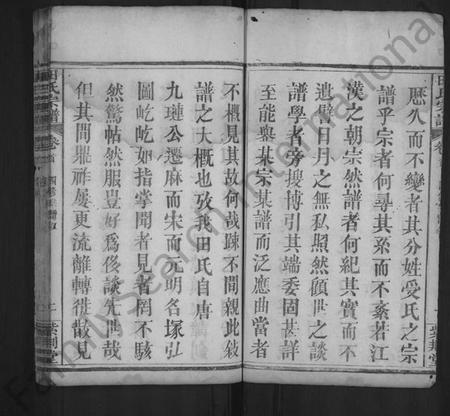 歷久而不變者其分姓受氏之宗
譜乎宗者何尋其系而不紊若江
漢之朝宗然譜者何紀其實而不
遺譬日月之無私照然顧世之談
譜學者旁搜博引其端委固甚詳
至能舉某宗某譜而泛應曲當者
不概見其故何哉踈不間親此敘
譜之大概也攷我田氏自唐
九璉公遷麻而宋而元明名塚弘
圖屹屹如指掌聞者見者罔不駭
然驚帖然服豈好為後談先世哉
但其間鼎祚屢更流離轉徙散見
田氏宗譜
卷首
二
紫荆堂
田氏宗譜
卷
Family Search International